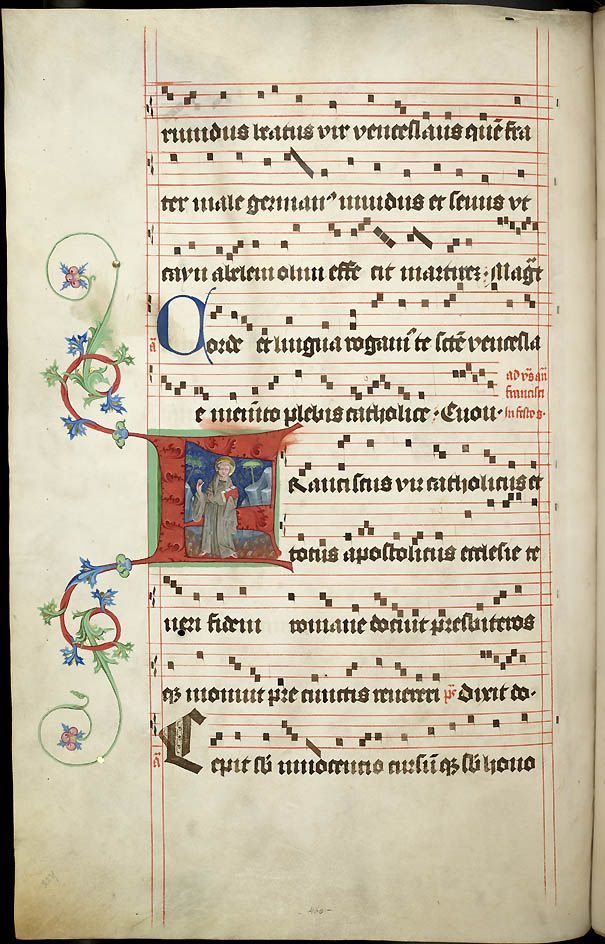 mundus beatus vir venceslaus quē fra
ter male germanꝰ mundus et seuus vt
cayn abelem olim esse fit martirez · Magt
Corde et lingua rogamꝰ te sctē vencesla
e memēto plebis catholice · Euou ·
ad vs̄ an
francisci
in festo s ·
Franciscus vir catholicus et
totus apostolicus ecclesie te
neri fidem romane docuit presbiteros
qȝ monuit pre cunctis reuereri ps̄ Dixit do ·
a Cepit sb innocentio cursū qȝ sb hono